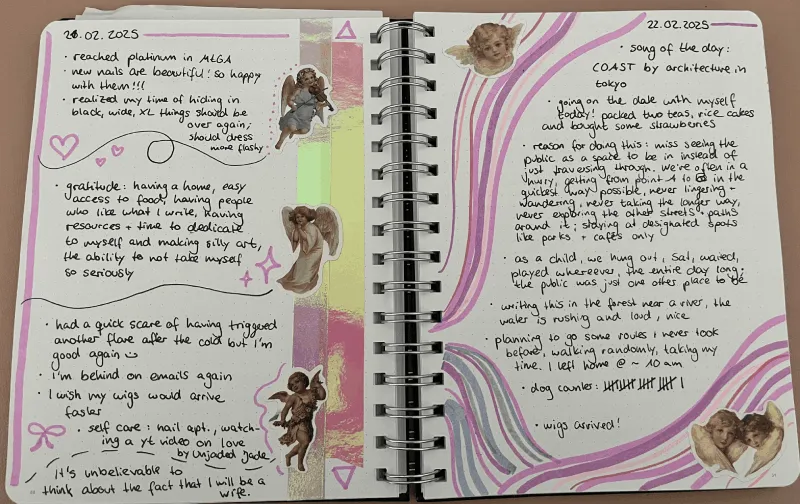 21.02.2025
· reached platinum in MtGA
· new nails are beautiful! so happy
with them!!!
· realized my time of hiding in
black, wide, XL things should be
over again;
should dress
more flashy
· gratitude: having a home, easy
access to food, having people
who like what I write, having
resources + time to dedicate
to myself and making silly art,
the ability to not take myself
so seriously
· had a quick scare of having triggered
another flare after the cold but I'm
good again
· I'm behind on emails again
· I wish my wigs would arrive
faster
· self care: nail apt., watch-
ing a yt video on love
by Unjaded Jade
It's unbelievable to
think about the fact that I will be a
wife.
22.02.2025
· song of the day:
COAST by architecture in
tokyo
· going on the date with myself
today! packed two teas, rice cakes
and bought some strawberries
· reason for doing this: miss seeing the
public as a space to be in instead of
just traversing through. we're often in a
hurry, getting from point A to B in the
quickest way possible, never lingering +
wandering, never taking the longer way,
never exploring the other streets + paths
around it; staying at designated spots
like parks + cafés only
· as a child, we hung out, sat, waited,
played whereever, the entire day long;
the public was just one other place to be
· writing this in the forest near a river, the
water is rushing and loud, nice
· planning to go some routes I never took
before, walking randomly, taking my
time. I left home @ ~ 10 am
· dog counter:
· wigs arrived!